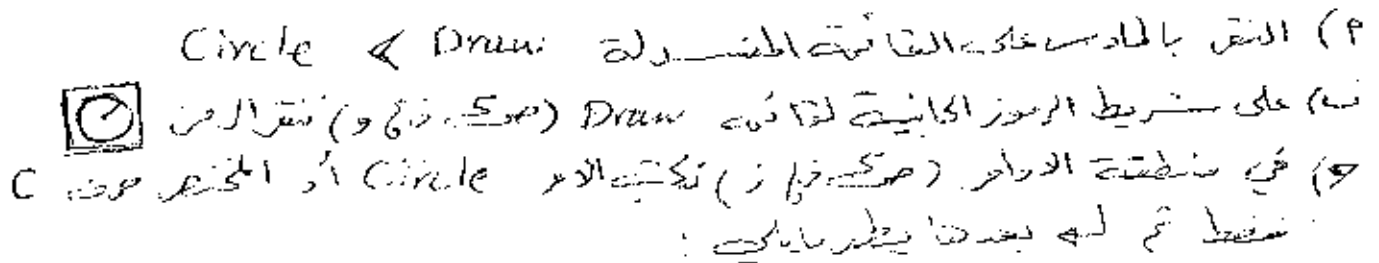 أ) النقر بالماوس على القائمة المنسدلة Draw > Circle
ب) على شريط الرموز الجانبية لقائمة Draw ( و) ننقر الرمز
ج) في منطقة الاوامر ( ز) نكتب الامر Circle أو المختصر حرف C
فقط ثم بعدها يظهر مايلي :